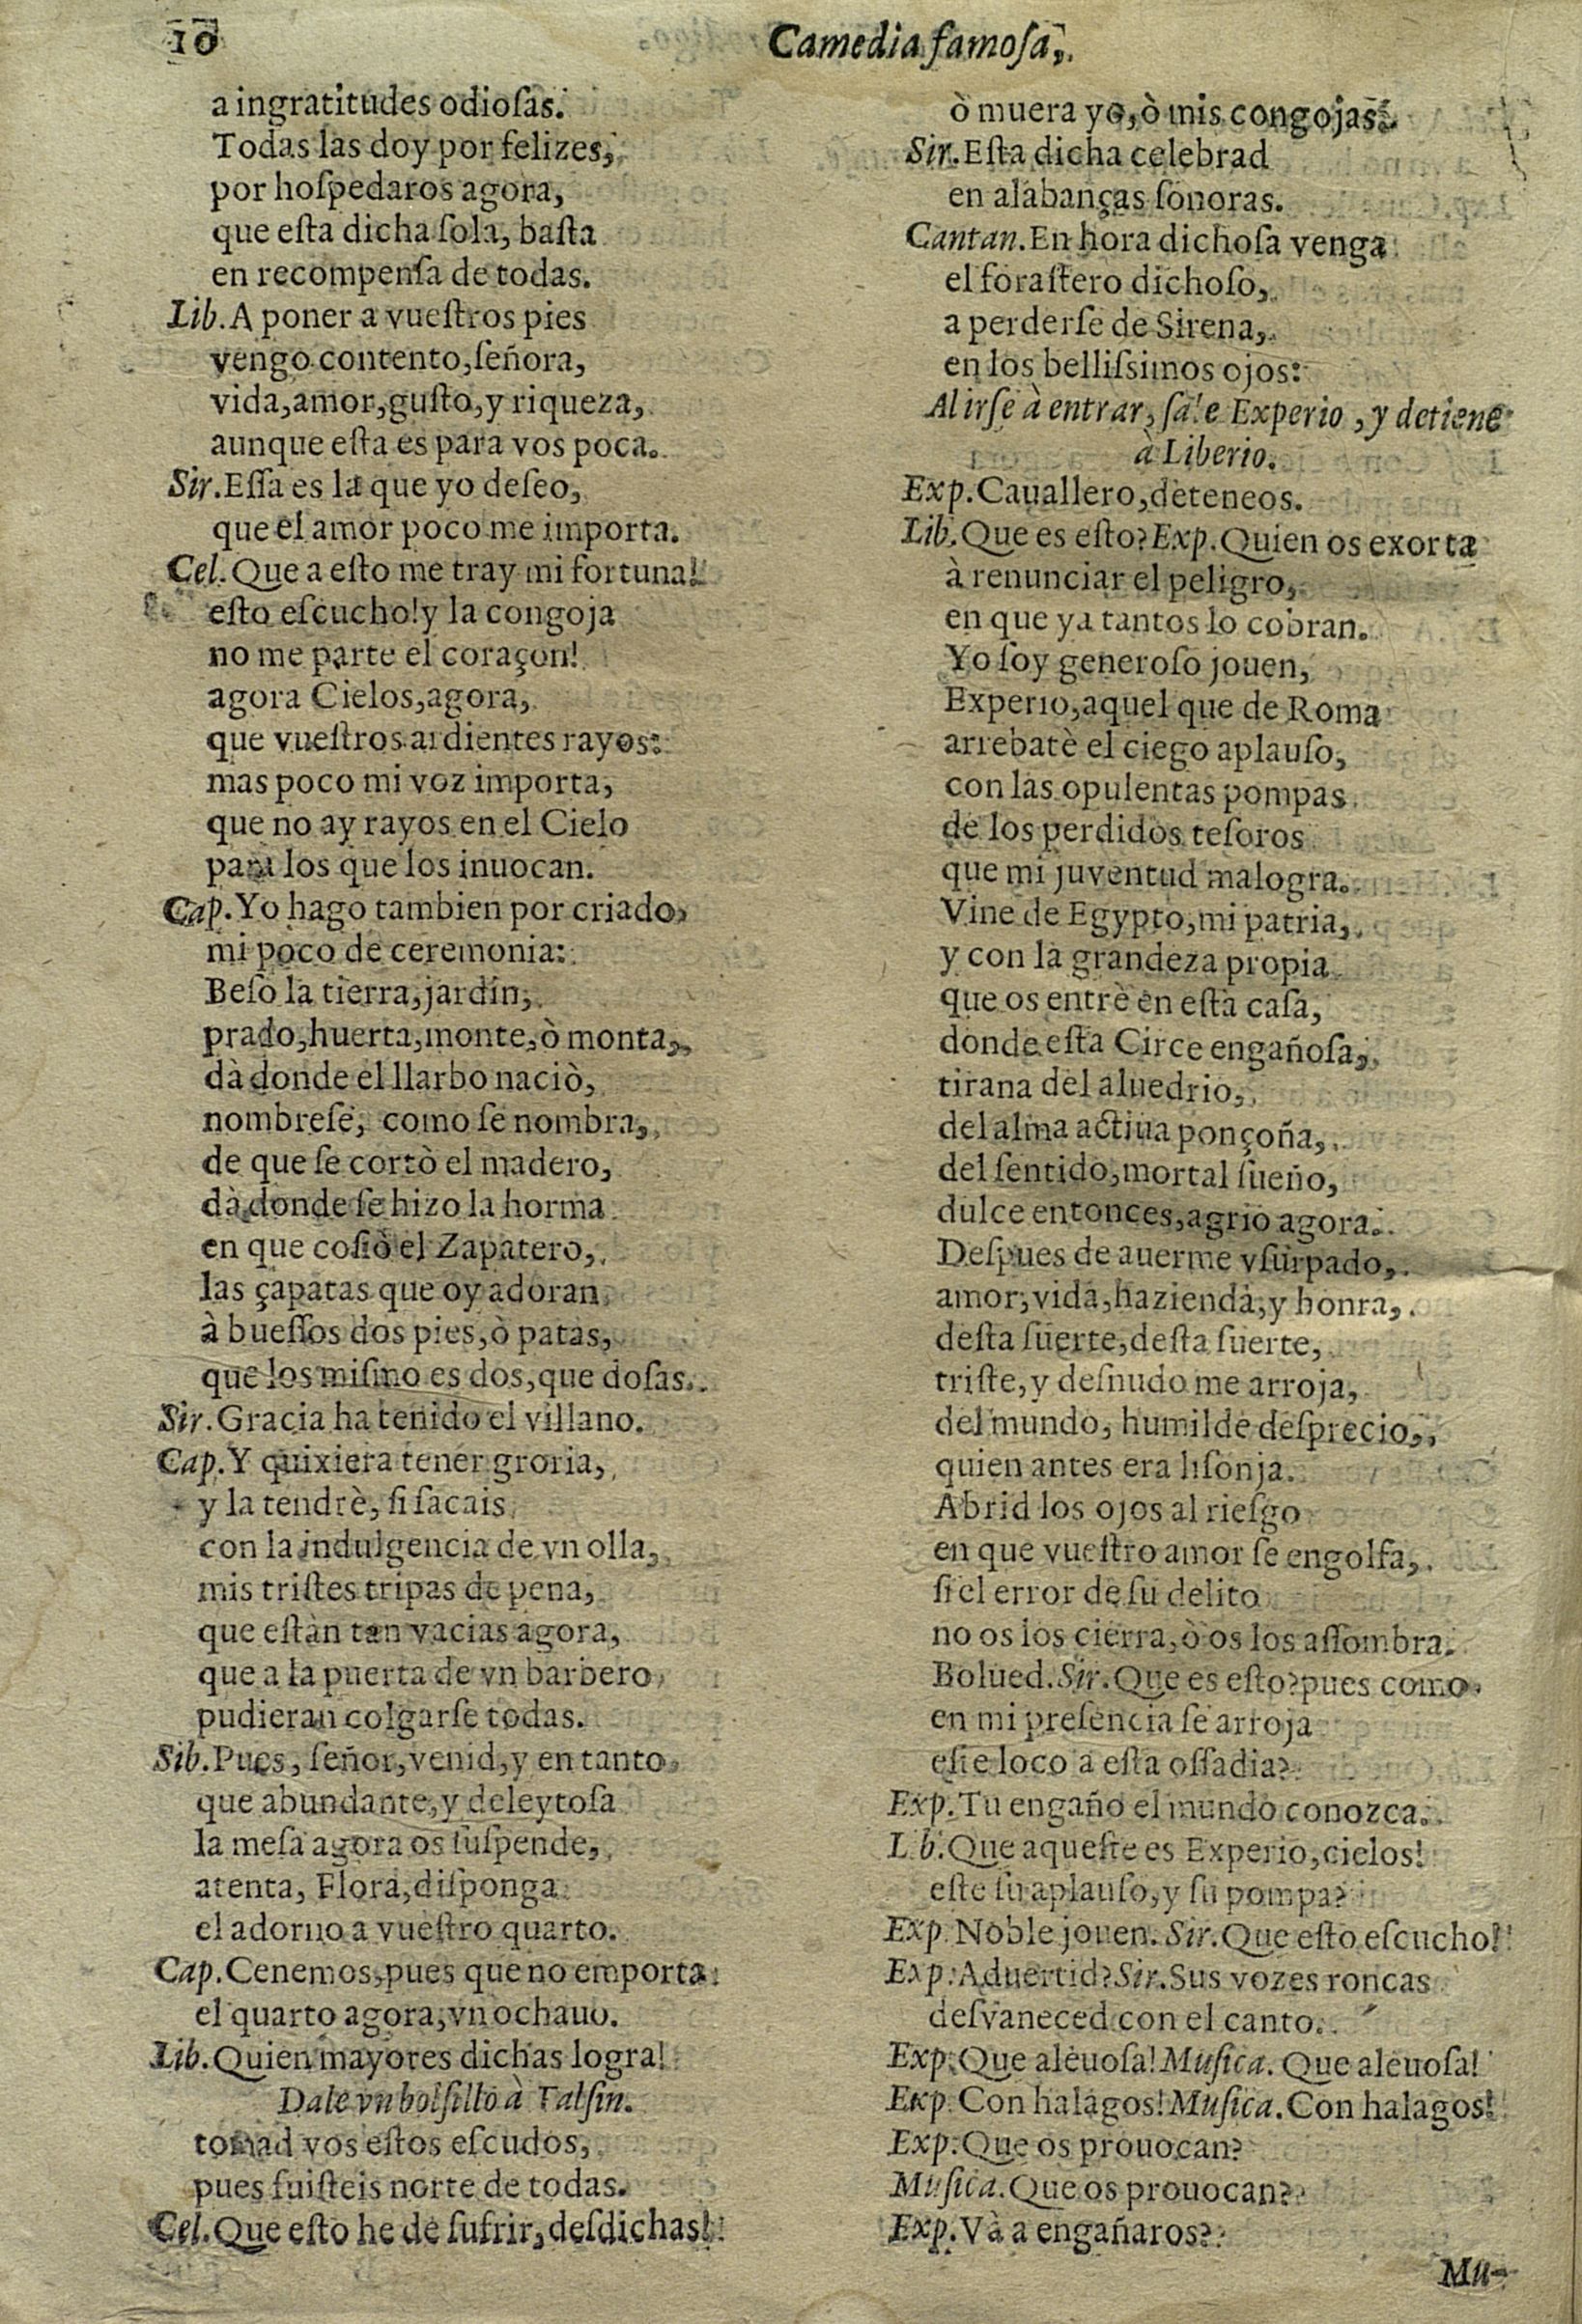 10
Camedia famosa,
a ingratitudes odiosas.
Todas las doy por felizes,
por hospedaros agora,
que esta dicha sola, basta
en recompensa de todas.
Lib. A poner a vuestros pies
vengo contento, señora,
vida, amor, gusto, y riqueza,
aunque esta es para vos poca.
Sir. Essa es la que yo deseo,
que el amor poco me importa.
Cel. Que a esto me tray mi fortuna!
esto escucho! y la congoja
no me parte el coraçon!
agora Cielos, agora,
que vuestros ardientes rayos:
mas poco mi voz importa,
que no ay rayos en el Cielo
para los que los inuocan.
Cap. Yo hago tambien por criado,
mi poco de ceremonia:
Beso la tierra, jardin,
prado, huerta, monte, ò monta,
dà donde el llarbo naciò,
nombrese, como se nombra,
de que se cortò el madero,
dà donde se hizo la horma
en que cosiò el Zapatero,
las çapatas que oy adoran
à buessos dos pies, ò patas,
que los mismo es dos, que dosas.
Sir. Gracia ha tenido el villano.
Cap. Y quixiera tener groria,
y la tendrè, si sacais
con la indulgencia de vn olla,
mis tristes tripas de pena,
que estàn tan vacias agora,
que a la puerta de vn barbero
pudieran colgarse todas.
Sib. Pues, señor, venid, y en tanto
que abundante, y deleytosa
la mesa agora os suspende,
atenta, Flora, disponga
el adorno a vuestro quarto.
Cap. Cenemos, pues que no emporta
el quarto agora, vn ochauo.
Lib. Quien mayores dichas logra!
Dale vn bolsillo à Talsin.
tomad vos estos escudos,
pues fuisteis norte de todas.
Cel. Que esto he de sufrir, desdichas!
ò muera yo, ò mis congojas.
Sir. Esta dicha celebrad
en alabanças sonoras.
Cantan. En hora dichosa venga
el forastero dichoso,
a perderse de Sirena,
en los bellissimos ojos:
Al irse à entrar, sale Experio, y detiene
à Liberio.
Exp. Cauallero, deteneos.
Lib. Que es esto? Exp. Quien os exorta
à renunciar el peligro,
en que ya tantos lo cobran.
Yo soy generoso jouen,
Experio, aquel que de Roma
arrebatè el ciego aplauso,
con las opulentas pompas
de los perdidos tesoros
que mi juventud malogra.
Vine de Egypto, mi patria,
y con la grandeza propia
que os entrè en esta casa,
donde esta Circe engañosa,
tirana del aluedrio,
del alma actiua ponçoña,
del sentido, mortal sueño,
dulce entonces, agrio agora.
Despues de auerme vsurpado,
amor, vida, hazienda, y honra,
desta suerte, desta suerte,
triste, y desnudo me arroja,
del mundo, humilde desprecio,
quien antes era lisonja.
Abrid los ojos al riesgo
en que vuestro amor se engolfa,
si el error de su delito
no os los cierra, ò os los assombra.
Bolued. Sir. Que es esto? pues como
en mi presencia se arroja
este loco a esta ossadia?
Exp. Tu engaño el mundo conozca.
L b. Que aqueste es Experio, cielos!
este su aplauso, y su pompa?
Exp. Noble jouen. Sir. Que esto escucho!
Exp. Aduertid? Sir. Sus vozes roncas
desvaneced con el canto.
Exp. Que aleuosa! Musica. Que aleuosa!
Exp. Con halagos! Musica. Con halagos!
Exp. Que os prouocan?
Musica. Que os prouocan?
Exp. Và a engañaros?
Mu-